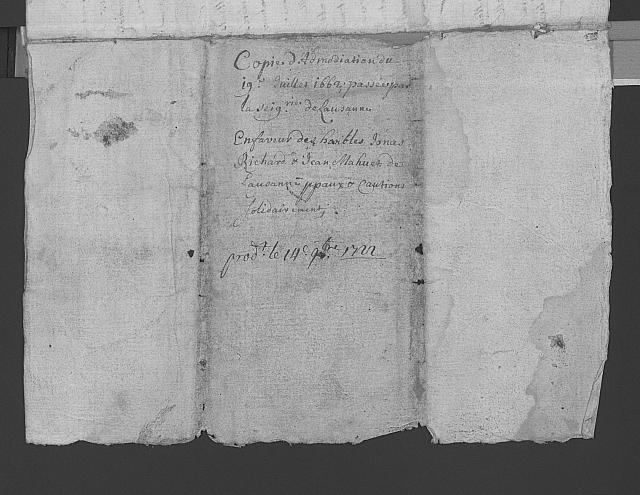 Copie d'Admodiation du
19e. Juillet 1662, passée par
la Seigrie. de Lausanne
En faveur des honbles Jonas
Richard & Jean Mahuet de
Lausanne ppaux & Cautions
solidairement.
prodt. le 14e. 9bre. 1722